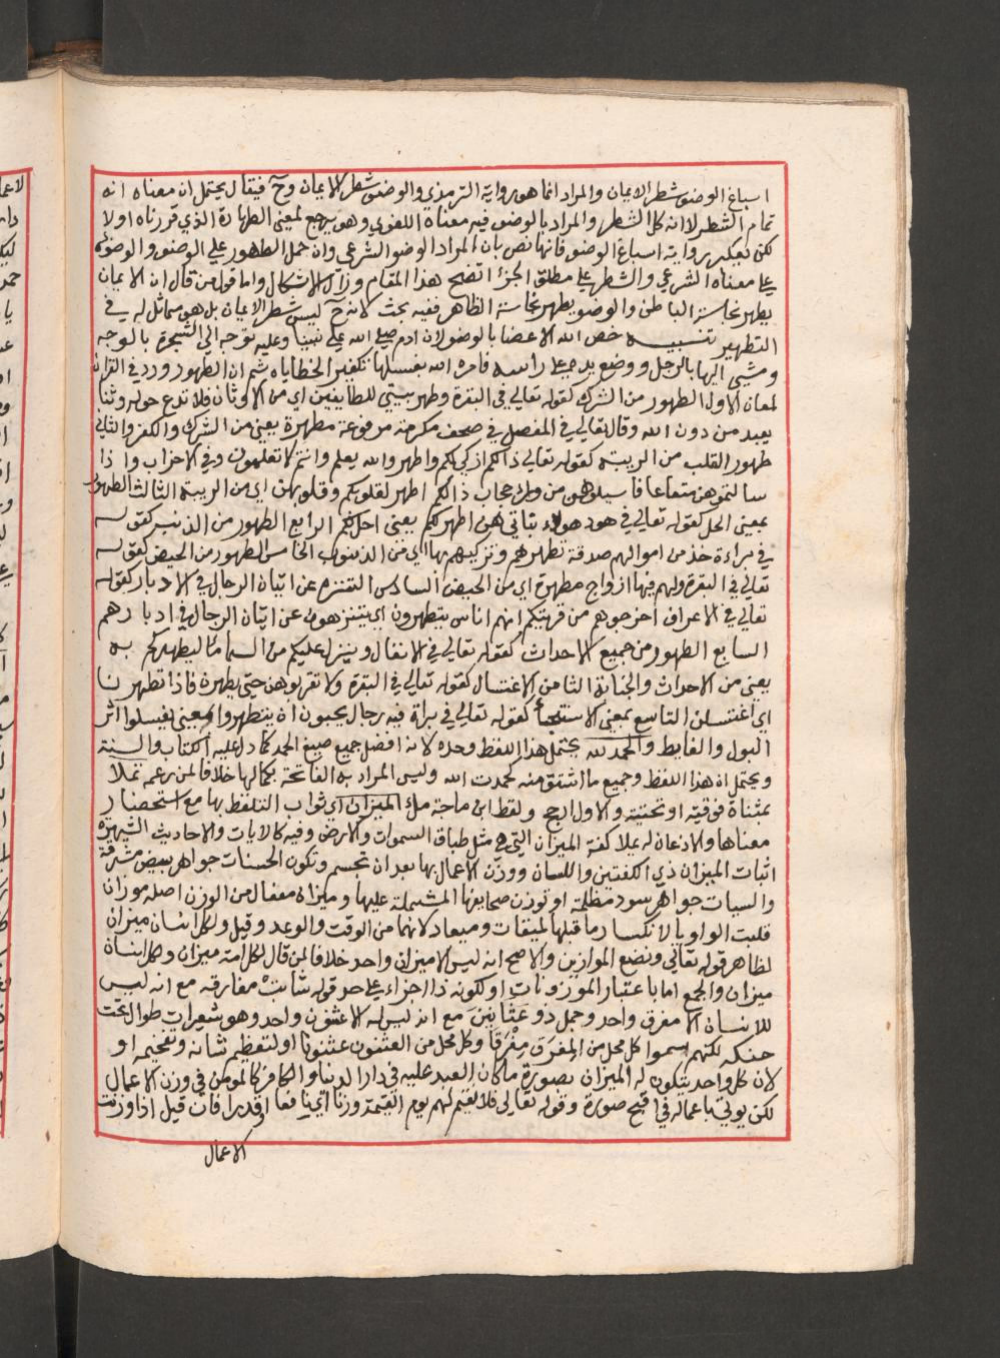 اسباغ الوضوء شطر الايمان والمراد انما هو رواية الترمذي والوضوء شطر الايمان وح فيقال يحتمل ان معناه انه
تمام الشطر لا انه كل الشطر والمراد بالوضوء فيه معناه اللغوي وهو يرجع لمعنى الطهارة الذي قررناه اولا
لكن يعكر رواية اسباغ الوضوء فانها نص بان المراد الوضوء الشرعي وان حمل الطهور على الوضوء والوضوء
على معناه الشرعي والشطر على مطلق الجزء اتضح هذا المقام وزال الاشكال واما قول من قال ان الايمان
يطهر نجاسة الباطن والوضوء يطهر نجاسة الظاهر ففيه بحث لانه ح ليس شطر الايمان بل هو مماثل له في
التطهير تنبيه خص الله الاعضا بالوضوء لان ادم صلى الله على نبينا وعليه توجه الى الشجرة بالوجه
ومشى اليها بالرجل ووضع يده على راسه فامره الله بغسلها تكفير الخطاياه ثم ان الطهور ورد في القران
لمعان الاول الطهور من الشرك لقوله تعالى في البقرة وطهر بيتي للطايفين اي من الاوثان فلا تدع حوله وثنا
يعبد من دون الله وقال تعالى في المفصل في صحف مكرمة مرفوعة مطهرة يعني من الشرك والكفر والثاني
طهور القلب من الريبة كقوله تعالى ذالكم ازكى لكم واطهر والله يعلم وانتم لا تعلمون وفي الاحزاب واذا
سالتموهن متاعا فاسيلوهن من وراء حجاب ذالكم اطهر لقلوبكم وقلوبهن اي من الريبة الثالث الطهور
بمعنى الحل كقوله تعالى في هود هولاء بناتي هن اطهر لكم يعني احل لكم الرابع الطهور من الذنب كقوله
في براءة خذ من اموالهم صدقة تطهرهم وتزكيهم بها اي من الذنوب الخامس الطهور من الحيض كقوله
تعالى في البقرة ولهم فيها ازواج مطهرة اي من الحيض السادس التنزه عن اتيان الرجال في الادبار كقوله
تعالى في الاعراف اخرجوهم من قريتكم انهم اناس يتطهرون اي يتنزهون عن اتيان الرجال في ادبارهم
السابع الطهور من جميع الاحداث كقوله تعالى في الانفال وينزل عليكم من السما مائا ليطهركم به
يعني من الاحداث والجنابة الثامن الاغتسال كقوله تعالى في البقرة ولا تقربوهن حتى يطهرن فاذا تطهرن
اي اغتسلن التاسع بمعنى الاستنجاء كقوله تعالى في براة فيه رجال يحبون ان يتطهروا يعني يغسلوا اثر
البول والغايط والحمد لله يحتمل هذا اللفظ وحده لانه افضل جميع صيغ الحمد كما دل عليه الكتاب والسنة
ويحتمل ان هذا اللفظ وجميع ما اشتق منه كحمدت الله وليس المراد به الفاتحة بكمالها خلافا لمن زعمه تملا
بمثناة فوقية او تحتية والاول ارجح ولفظ ابن ماجة ملء الميزان اي ثواب التلفظ بها مع استحضار
معناها والاذعان له يملا كفة الميزان التي هي مثل طباق السموات والارض وفيه كالايات والاحاديث الشهيرة
اثبات الميزان ذي الكفتين واللسان ووزن الاعمال بها بعد ان تجسم وتكون الحسنات جواهر بيض مشرقة
والسيات جواهر سود مظلمة او توزن صحايفها المشتملة عليها وميزان مفعال من الوزن اصله موزان
قلبت الواو يا لانكسار ما قبلها كميقات وميعاد لانهما من الوقت والوعد وقيل ولكل انسان ميزان
لظاهر قوله تعالى ونضع الموازين والاصح انه ليس الا ميزان واحد خلافا لمن قال لكل امة ميزان ولكل انسان
ميزان والجمع اما باعتبار الموزونات او لكونه ذا اجزاء على حد قوله شابت مفارقه مع انه ليس
للانسان الا مفرق واحد وجمل ذو عثانين مع انه ليس له الا عثنون واحد وهو شعيرات طوال تحت
حنكه لكنهم اسموا كل محل من المفرق مفرقا وكل محل من العثنون عثنونا او لتعظيم شانه وتفخيمه او
لان كل واحد يتكون له الميزان بصورة ما كان العبد عليه في دار الدنيا والكافر كالمومن في وزن الاعمال
لكن يوتى باعماله في اقبح صورة وقوله تعالى فلا نقيم لهم يوم القيمة وزنا اي نافعا او قدرا فان قيل اذا وزنت
الاعمال